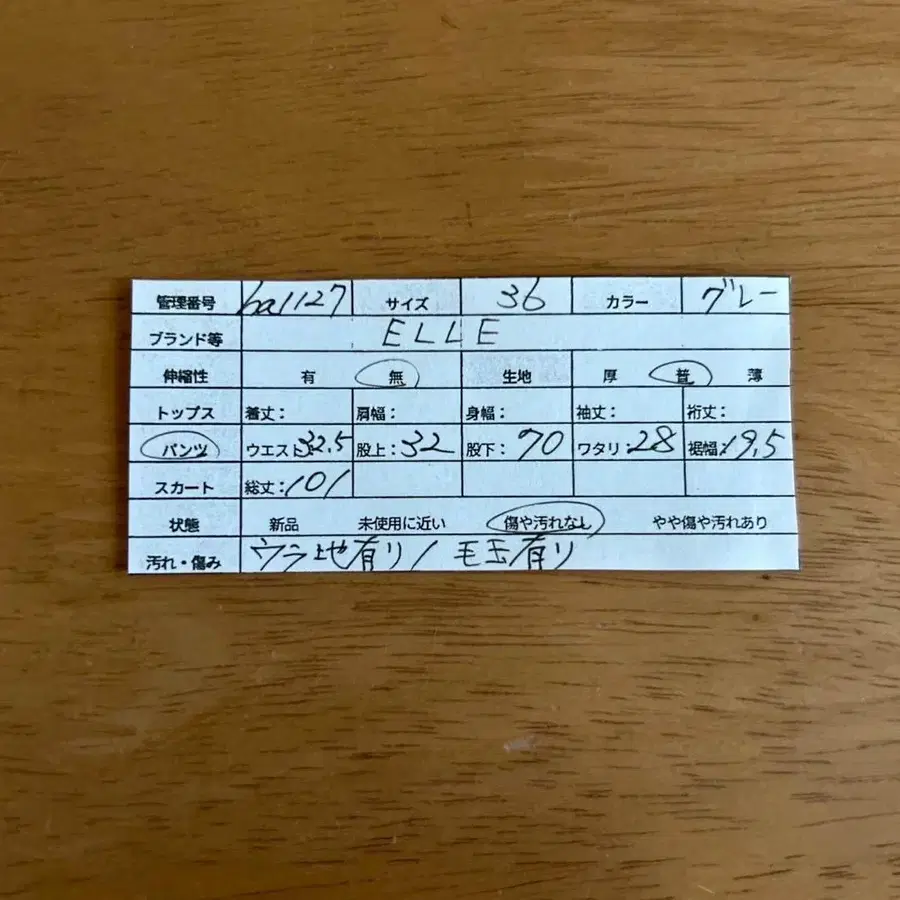 管理番号 ba1127 サイズ 36 カラー グレー
ブランド等 ELLE
伸縮性 有 無 生地 厚 普 薄
トップス 着丈: 肩幅: 身幅: 袖丈: 裄丈:
パンツ ウエスト:32.5 股上:32 股下:70 ワタリ:28 裾幅:19.5
スカート 総丈:101
状態 新品 未使用に近い 傷や汚れなし やや傷や汚れあり
汚れ・傷み ウラ地有り/毛玉有り